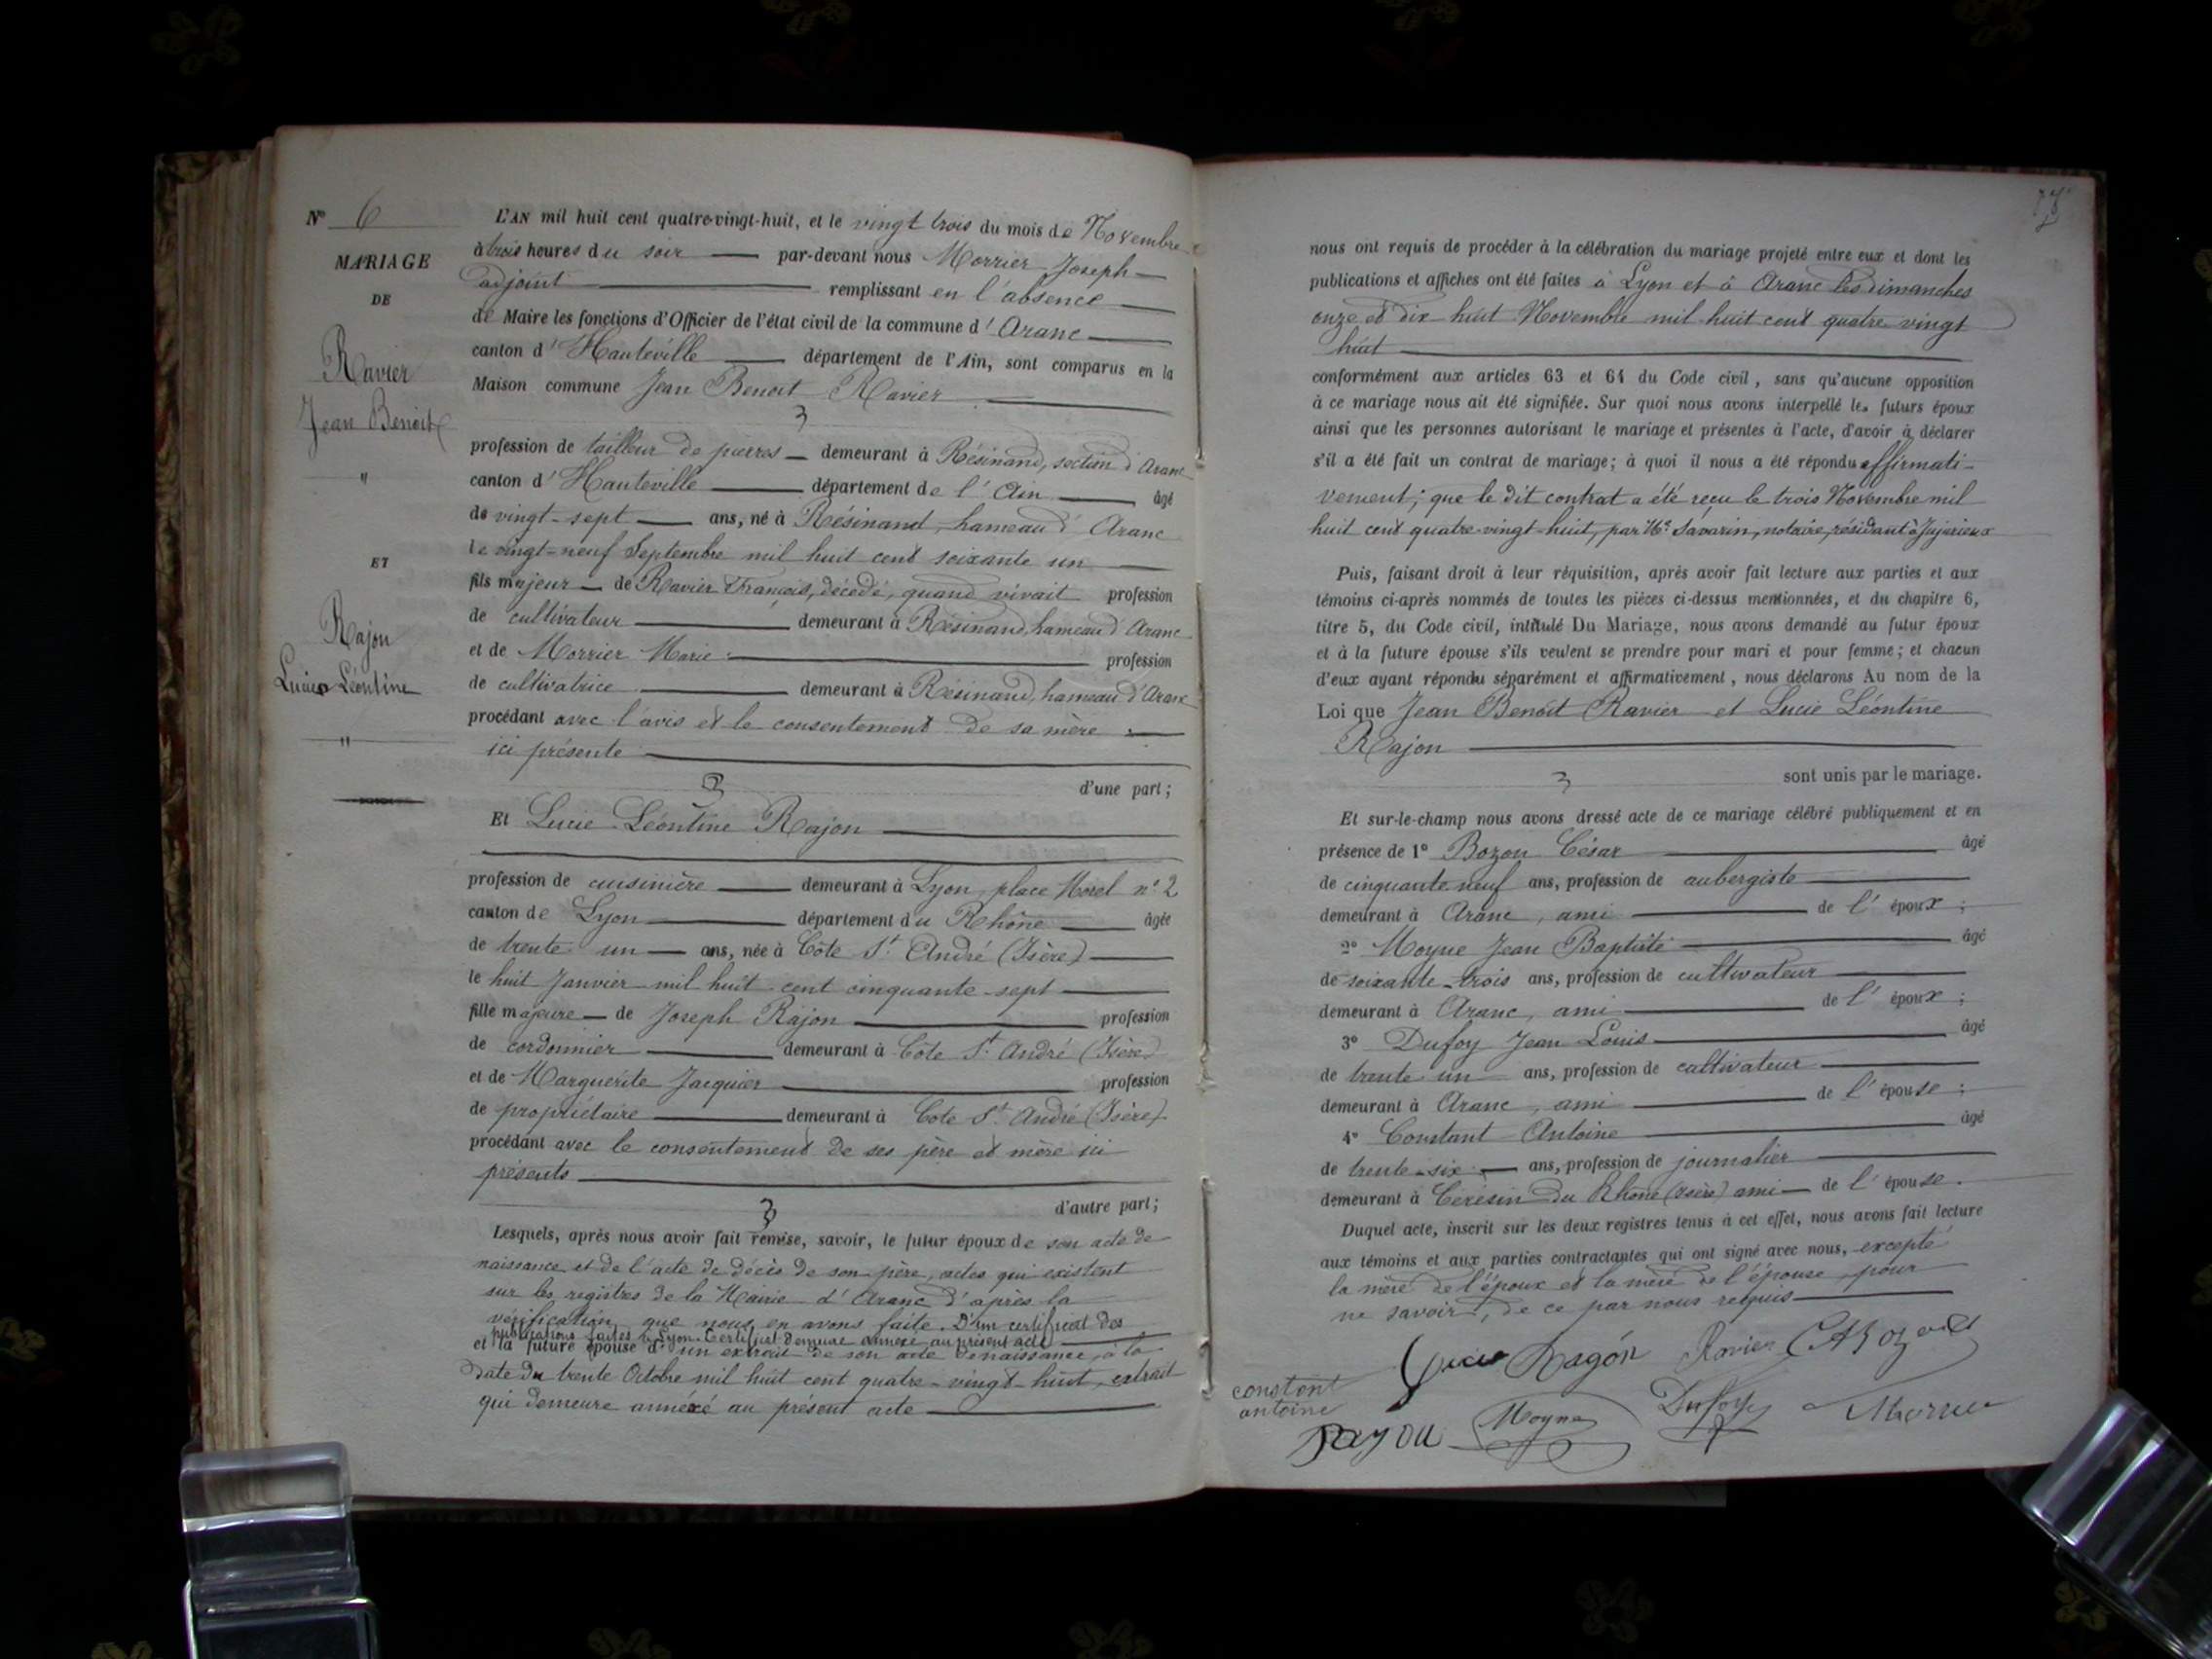 N° 6
MARIAGE
DE
Ravier
Jean Benoit
"
ET
Rajon
Lucie Léontine
"
L'AN mil huit cent quatre-vingt-huit, et le vingt trois du mois de Novembre
à trois heures du soir par-devant nous Morrier Joseph
adjoint remplissant en l'absence
de Maire les fonctions d'Officier de l'état civil de la commune d'Aranc
canton d'Hauteville département de l'Ain, sont comparus en la
Maison commune Jean Benoit Ravier
profession de tailleur de pierres demeurant à Résinand, section d'Aranc
canton d'Hauteville département de l'Ain âgé
de vingt-sept ans, né à Résinand, hameau d'Aranc
le vingt-neuf Septembre mil huit cent soixante un
fils majeur de Ravier François, décédé, quand vivait profession
de cultivateur demeurant à Résinand, hameau d'Aranc
et de Morrier Marie profession
de cultivatrice demeurant à Résinand, hameau d'Aranc
procédant avec l'avis et le consentement de sa mère
ici présente
d'une part;
Et Lucie Léontine Rajon
profession de cuisinière demeurant à Lyon, place Morel n° 2
canton de Lyon département du Rhône âgée
de trente un ans, née à Côte St André (Isère)
le huit Janvier mil huit cent cinquante-sept
fille majeure de Joseph Rajon profession
de cordonnier demeurant à Côte St André (Isère)
et de Marguerite Jacquier profession
de propriétaire demeurant à Côte St André (Isère)
procédant avec le consentement de ses père et mère ici
présents
d'autre part;
Lesquels, après nous avoir fait remise, savoir, le futur époux de son acte de
naissance et de l'acte de décès de son père, actes qui existent
sur les registres de la Mairie d'Aranc d'après la
vérification que nous en avons faite. D'un certificat des
publications faites à Lyon. Certificat demeure annexé au présent acte
et la future épouse d'un extrait de son acte de naissance, à la
date du trente Octobre mil huit cent quatre-vingt-huit, extrait
qui demeure annéxé au présent acte
nous ont requis de procéder à la célébration du mariage projeté entre eux et dont les
publications et affiches ont été faites à Lyon et à Aranc les dimanches
onze et dix huit Novembre mil huit cent quatre vingt
huit
conformément aux articles 63 et 64 du Code civil, sans qu'aucune opposition
à ce mariage nous ait été signifiée. Sur quoi nous avons interpellé les futurs époux
ainsi que les personnes autorisant le mariage et présentes à l'acte, d'avoir à déclarer
s'il a été fait un contrat de mariage; à quoi il nous a été répondu affirmati-
vement; que le dit contrat a été reçu le trois Novembre mil
huit cent quatre-vingt-huit, par Me Savarin, notaire, résidant à Jujurieux
Puis, faisant droit à leur réquisition, après avoir fait lecture aux parties et aux
témoins ci-après nommés de toutes les pièces ci-dessus mentionnées, et du chapitre 6,
titre 5, du Code civil, intitulé Du Mariage, nous avons demandé au futur époux
et à la future épouse s'ils veulent se prendre pour mari et pour femme; et chacun
d'eux ayant répondu séparément et affirmativement, nous déclarons Au nom de la
Loi que Jean Benoît Ravier et Lucie Léontine
Rajon
sont unis par le mariage.
Et sur-le-champ nous avons dressé acte de ce mariage célébré publiquement et en
présence de 1° Bozon César âgé
de cinquante neuf ans, profession de aubergiste
demeurant à Aranc, ami de l'époux;
2° Moyne Jean Baptiste âgé
de soixante-trois ans, profession de cultivateur
demeurant à Aranc, ami de l'époux;
3° Dufoy Jean Louis âgé
de trente un ans, profession de cultivateur
demeurant à Aranc, ami de l'épouse;
4° Constant Antoine âgé
de trente-six ans, profession de journalier
demeurant à Cérésin du Rhône (Isère) ami de l'épouse.
Duquel acte, inscrit sur les deux registres tenus à cet effet, nous avons fait lecture
aux témoins et aux parties contractantes qui ont signé avec nous, excepté
la mère de l'époux et la mère de l'épouse, pour
ne savoir, de ce par nous requis
Lucie Ragon Ravier Bozon
constant
antoine
Rajou Moyne Dufoy Morrier